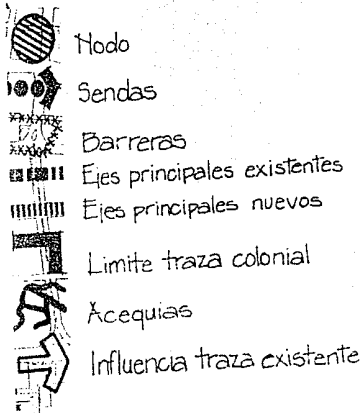 Nodo
Sendas
Barreras
Ejes principales existentes
Ejes principales nuevos
Limite traza colonial
Acequias
Influencia traza existente